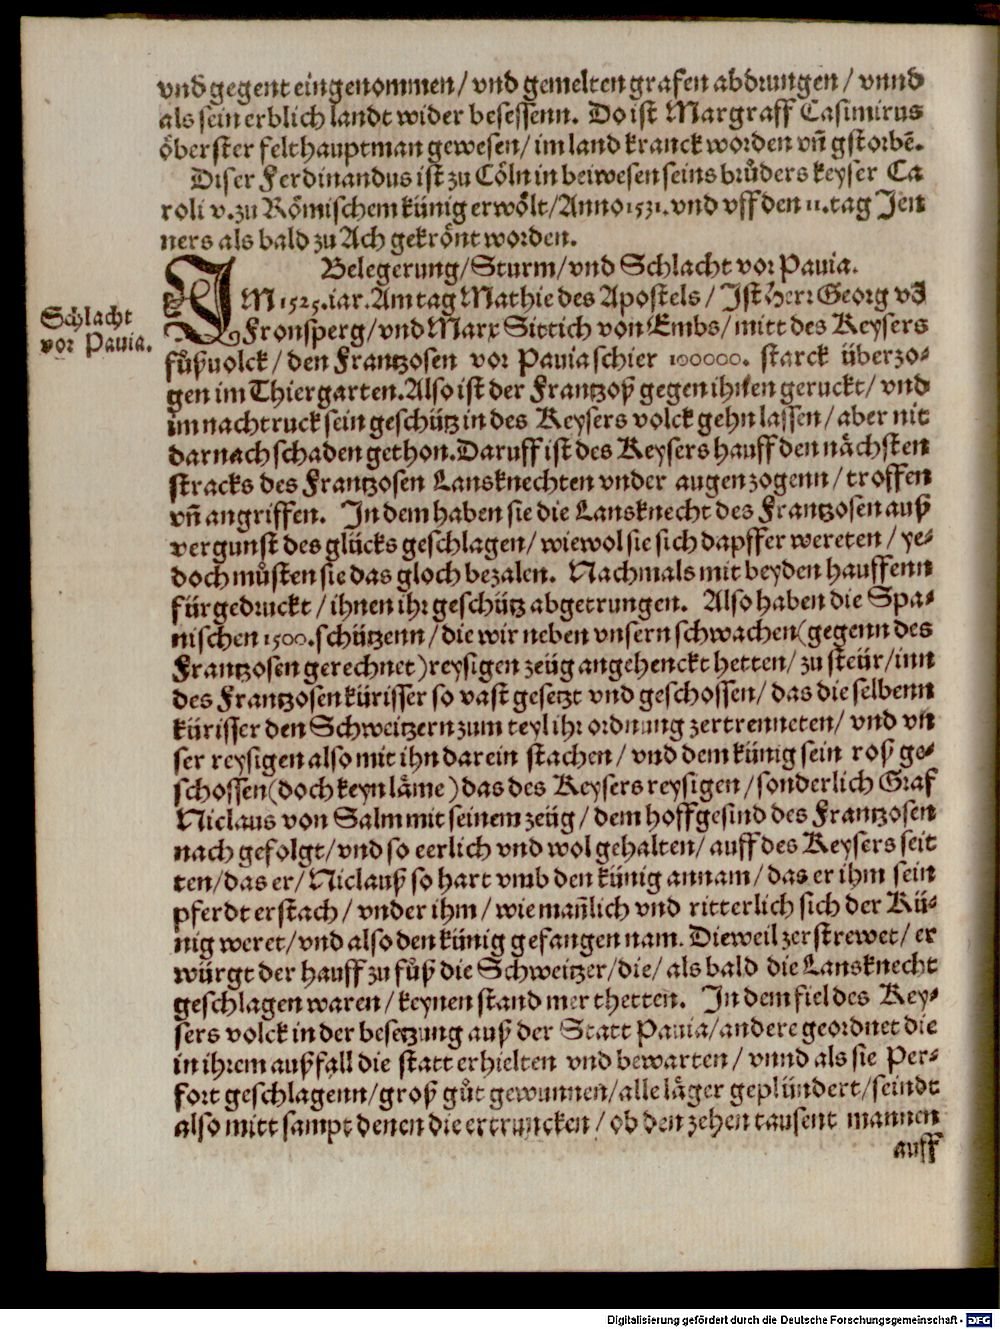 vnd gegent eingenommen/ vnd gemelten grafen abdrungen/ vnnd
als sein erblich landt wider besessenn. Do ist Margraff Casimirus
öberster felthauptman gewesen/ im land kranck worden vñ gstorbẽ.
Diser Ferdinandus ist zu Cöln in beiwesen seins brůders keyser Ca
roli v. zu Römischem künig erwölt/ Anno 1531. vnd vff den 11. tag Jen
ners als bald zu Ach gekrönt worden.
Belegerung/ Sturm/ vnd Schlacht vor Pauia.
Schlacht
vor Pauia.
IM 1525. iar. Am tag Mathie des Apostels/ Ist Herr Georg võ
Fronsperg/ vnd Marx Sittich von Embs/ mitt des Keysers
fůßuolck/ den Frantzosen vor Pauia schier 100000. starck überzo-
gen im Thiergarten. Also ist der Frantzoß gegen ihnen geruckt/ vnd
im nachtruck sein geschütz in des Keysers volck gehn lassen/ aber nit
darnach schaden gethon. Daruff ist des Keysers hauff den nächsten
stracks des Frantzosen Lansknechten vnder augen zogenn/ troffen
vñ angriffen. In dem haben sie die Lansknecht des Frantzosen auß
vergunst des glücks geschlagen/ wiewol sie sich dapffer wereten/ ye-
doch můsten sie das gloch bezalen. Nachmals mit beyden hauffenn
für gedruckt/ ihnen ihr geschütz abgetrungen. Also haben die Spa-
nischen 1500. schützenn/ die wir neben vnsern schwachen (gegenn des
Frantzosen gerechnet) reysigen zeüg angehenckt hetten/ zu steür/ inn
des Frantzosen kürisser so vast gesetzt vnd geschossen/ das die selbenn
kürisser den Schweitzern zum teyl ihr ordnung zertrenneten/ vnd vn
ser reysigen also mit ihn darein stachen/ vnd dem künig sein roß ge-
schossen (doch keyn läme) das des Keysers reysigen/ sonderlich Graf
Niclaus von Salm mit seinem zeüg/ dem hoffgesind des Frantzosen
nach gefolgt/ vnd so eerlich vnd wol gehalten/ auff des Keysers seit
ten/ das er/ Niclauß so hart vmb den künig annam/ das er ihm sein
pferdt erstach/ vnder ihm/ wie mañlich vnd ritterlich sich der Kü-
nig weret/ vnd also den künig gefangen nam. Dieweil zerstrewet/ er
würgt der hauff zu fůß die Schweitzer/ die/ als bald die Lansknecht
geschlagen waren/ keynen stand mer thetten. In dem fiel des Key-
sers volck in der besetzung auß der Statt Pauia/ andere geordnet die
in ihrem außfall die statt erhielten vnd bewarten/ vnnd als sie Per-
fort geschlagenn/ groß gůt gewunnen/ alle läger geplündert/ seindt
also mitt sampt denen die ertruncken/ ob den zehen tausent mannen
auff
Digitalisierung gefördert durch die Deutsche Forschungsgemeinschaft - DFG